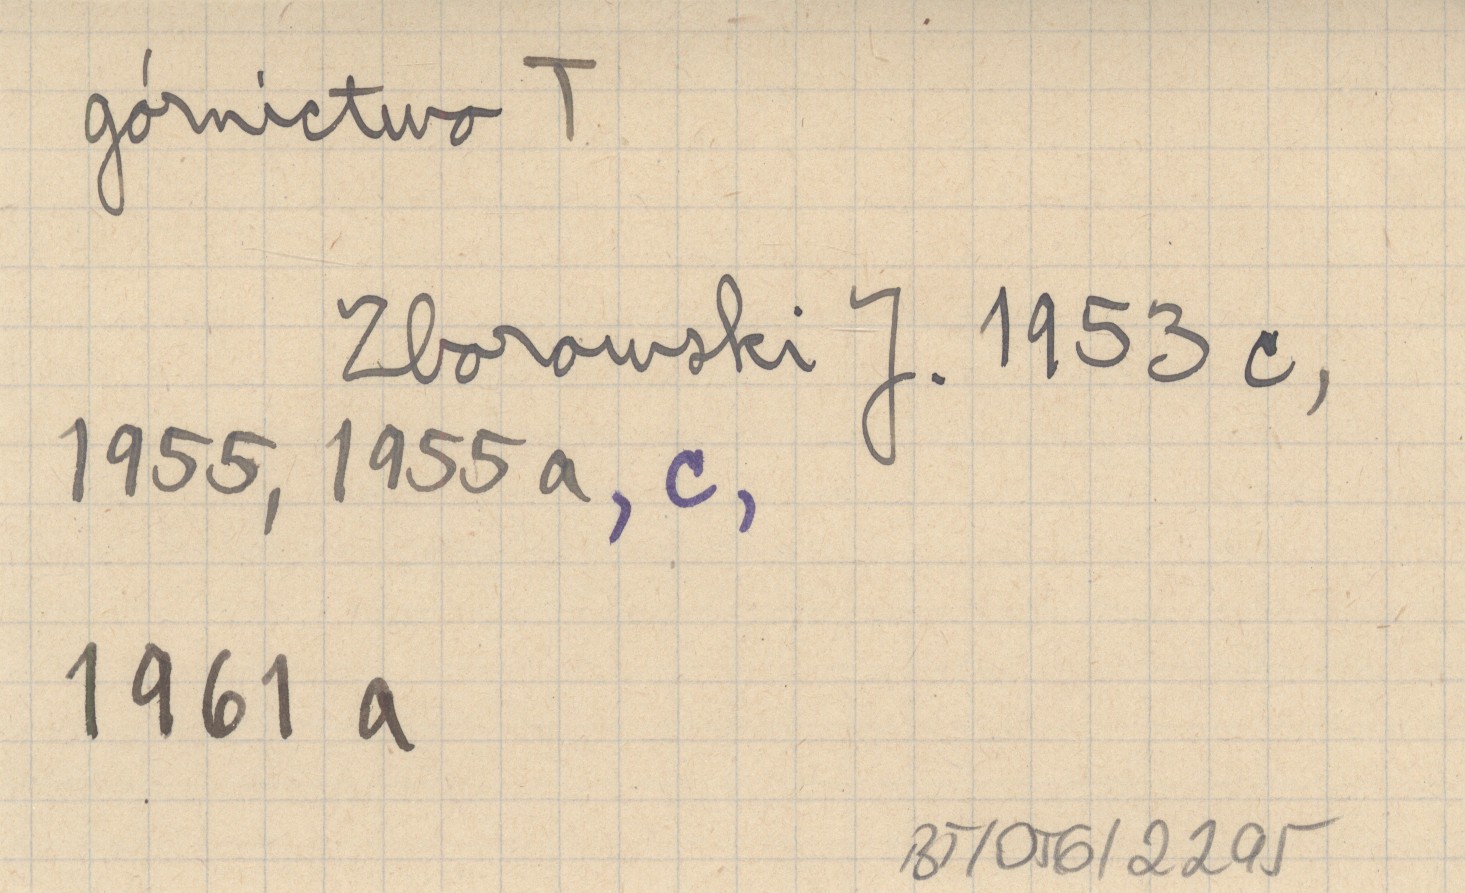 górnictwo T
Zborowski J. 1953 c,
1955, 1955 a, c,
1961 a
BT/056/2295